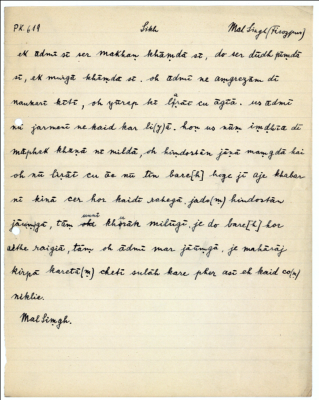 PK 619 Sikh Mal Singh (Firozpur)
ek ādmī sī ser makhaṇ khāṃdā sī, do ser dūdh pīṃdā
sī, ek murgā khāṃdā sī. oh ādmī ne aṃgrezāṃ dī
naukarī kītī, oh yūrap ke laṛāī cu āgīā. us ādmī
nū jarmenī ne kaid kar li(y)ā. hoṇ us nūṃ iṃdhīā dī
māphek khāṇā nī mildā, oh hindostān jāṇā maṃgdā hai
oh nū laṛāī cu āe nū tīn bare[h] hoge jī āje khabar
nī kinā cer hor kaida rahegā, jado(ṃ) hindostān
jāuṃgā, tāṃ unnī khūrāk milūgī, je do bare[h] hor
aethe raigiā, tāṃ oh ādmī mar jāūṃgā. je mahārāj
kirpā karetā(ṃ) chetī sulāh kare pher asī eh kaid co(ṃ)
niklie.
Mal Siṃgh.